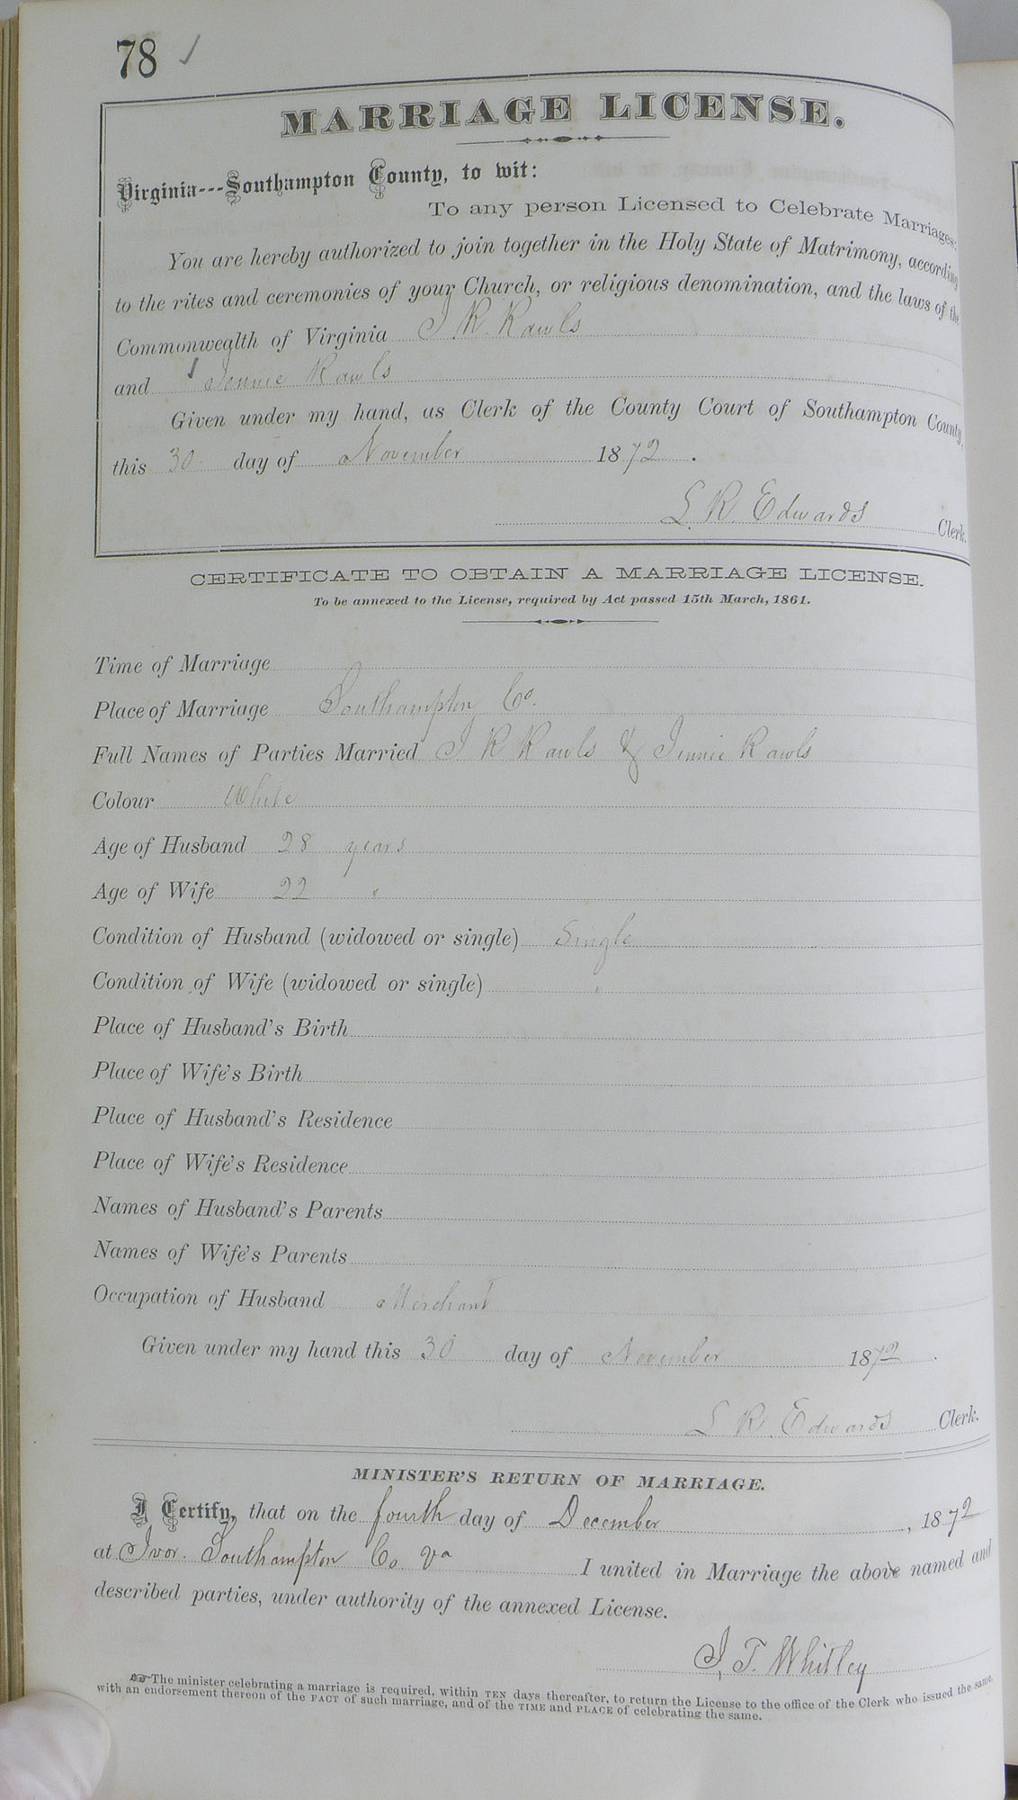 78 ✓
MARRIAGE LICENSE.
Virginia---Southampton County, to wit:
To any person Licensed to Celebrate Marriages:
You are hereby authorized to join together in the Holy State of Matrimony, according
to the rites and ceremonies of your Church, or religious denomination, and the laws of the
Commonwealth of Virginia J. R. Rawls
and Jennie Rawls
Given under my hand, as Clerk of the County Court of Southampton County,
this 30 day of November 1872.
L. R. Edwards Clerk.
CERTIFICATE TO OBTAIN A MARRIAGE LICENSE.
To be annexed to the License, required by Act passed 15th March, 1861.
Time of Marriage
Place of Marriage Southampton Co.
Full Names of Parties Married J R Rawls & Jennie Rawls
Colour White
Age of Husband 28 years
Age of Wife 22 "
Condition of Husband (widowed or single) Single
Condition of Wife (widowed or single) "
Place of Husband's Birth
Place of Wife's Birth
Place of Husband's Residence
Place of Wife's Residence
Names of Husband's Parents
Names of Wife's Parents
Occupation of Husband Merchant
Given under my hand this 30 day of November 1872.
L R. Edwards Clerk.
MINISTER'S RETURN OF MARRIAGE.
I Certify, that on the fourth day of December, 1872
at Ivor. Southampton Co. Va I united in Marriage the above named and
described parties, under authority of the annexed License.
J. T. Whitley
☞The minister celebrating a marriage is required, within TEN days thereafter, to return the License to the office of the Clerk who issued the same,
with an endorsement thereon of the FACT of such marriage, and of the TIME and PLACE of celebrating the same.